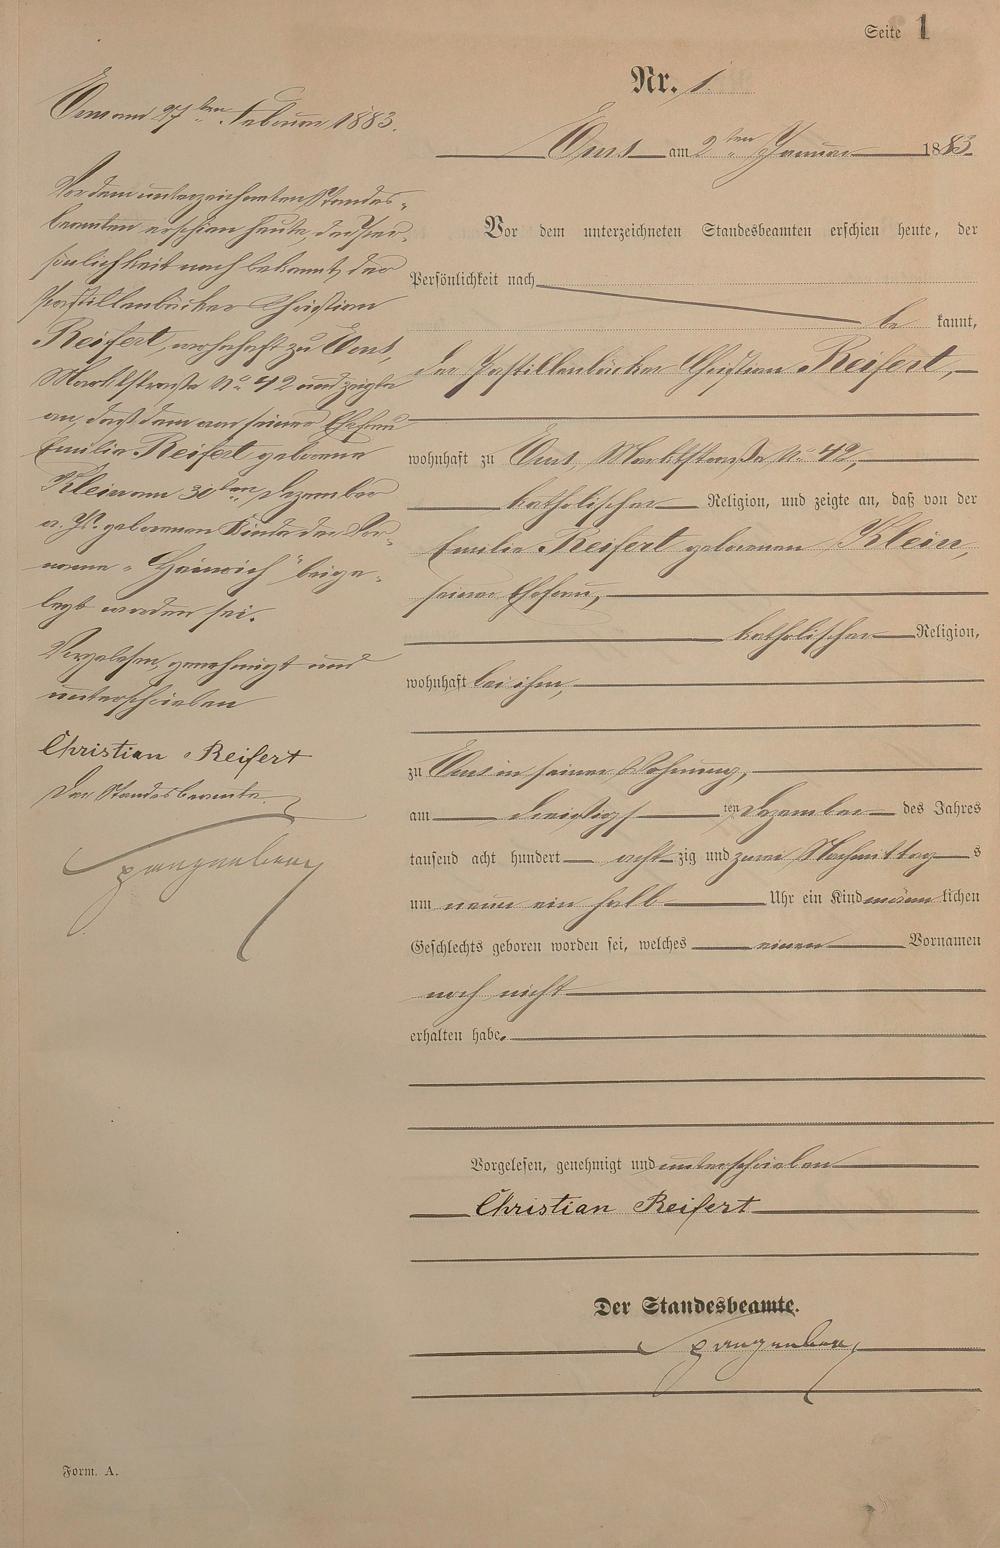 Seite 1
Nr. 1.
Ems am 2ten Januar 1883
Vor dem unterzeichneten Standesbeamten erschien heute, der
Persönlichkeit nach
be kannt,
der Pastillenbäcker Christian Reifert,
wohnhaft zu Ems, Marktstraße No 42,
katholischer Religion, und zeigte an, daß von der
Emilie Reifert geborenen Klein,
seiner Ehefrau,
katholischer Religion,
wohnhaft bei ihm,
zu Ems in seiner Wohnung,
am dreißigsten Dezember des Jahres
tausend acht hundert acht zig und zwei Nachmittags
um neun ein halb Uhr ein Kind männlichen
Geschlechts geboren worden sei, welches einen Vornamen
noch nicht
erhalten habe.
Vorgelesen, genehmigt und unterschrieben
Christian Reifert
Der Standesbeamte.
Spangenberg
Ems am 27ten Februar 1883.
Vor dem unterzeichneten Standes-
beamten erschien heute, der Per-
sönlichkeit nach bekannt, der
Pastillenbäcker Christian
Reifert, wohnhaft zu Ems,
Marktstraße No 42 und zeigte
an, daß dem von seiner Ehefrau
Emilie Reifert geborene
Klein am 30ten Dezember
v. Js. geborenen Kinde der Vor-
name "Heinrich" beige-
legt worden sei.
Vorgelesen, genehmigt und
unterschrieben
Christian Reifert
Der Standesbeamte.
Spangenberg
Form. A.